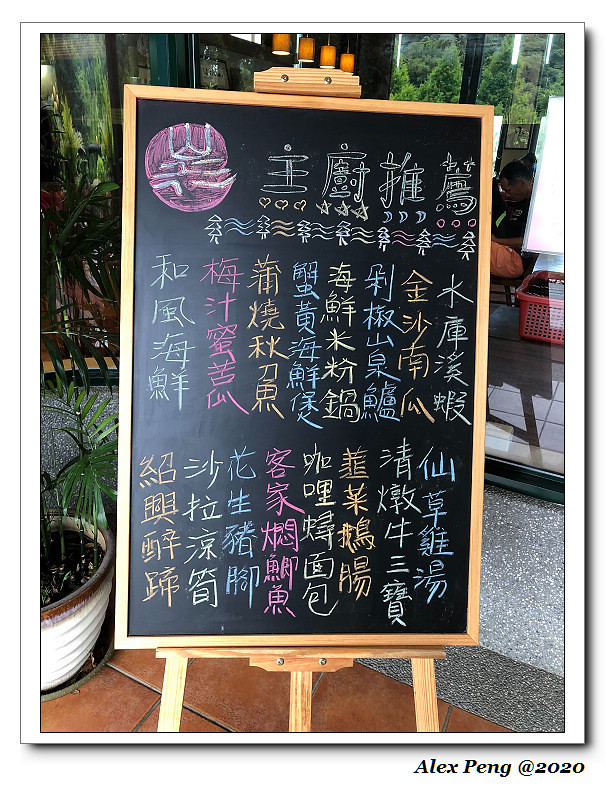 主廚推薦
水庫溪蝦
金沙南瓜
剁椒山泉鱸
海鮮米粉鍋
蟹黃海鮮煲
蒲燒秋刀魚
梅汁蜜苦瓜
和風海鮮
仙草雞湯
清燉牛三寶
韮菜鵝腸
咖哩蟳面包
客家燜鯽魚
花生豬腳
沙拉涼筍
紹興醉蹄
Alex Peng @2020